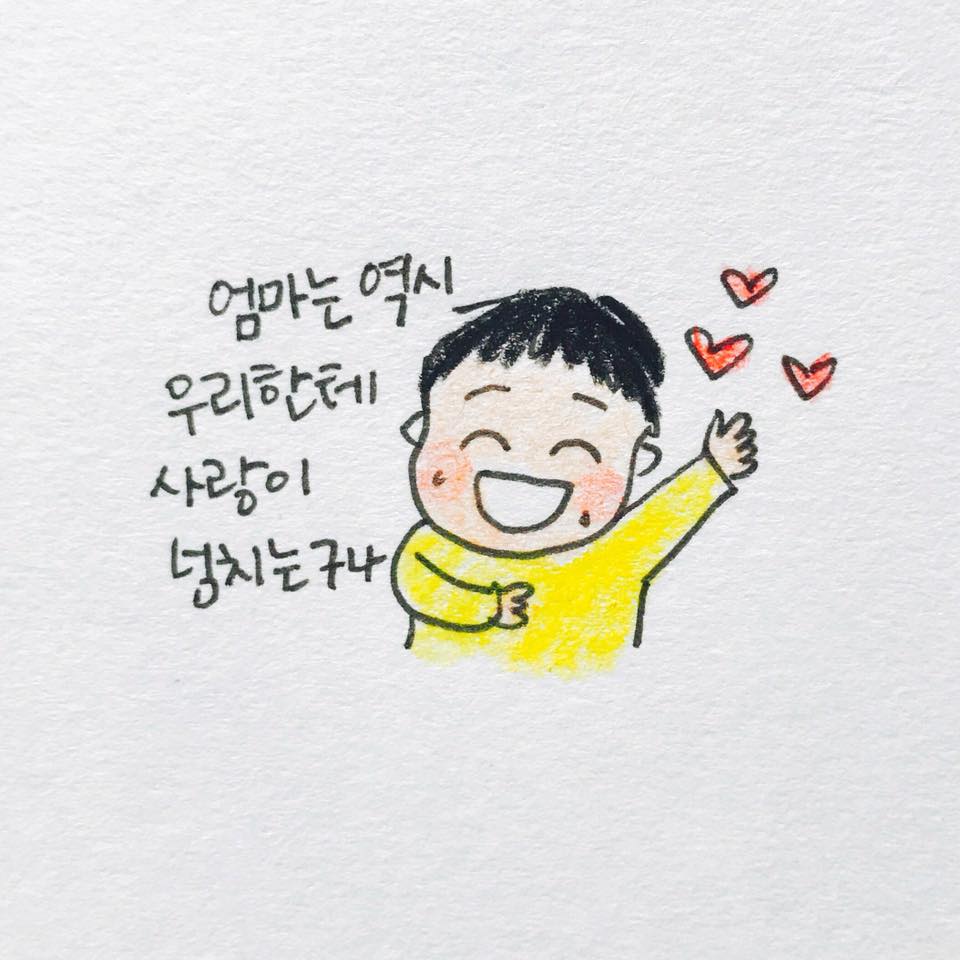 엄마는 역시
우리한테
사랑이
넘치는구나